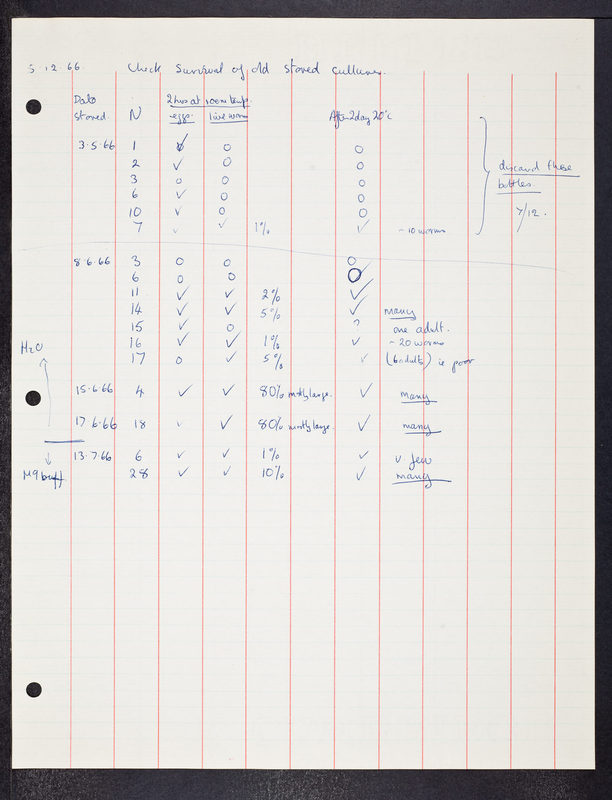 5.12.66. Check Survival of old stored cultures.
Date stored. N 2 hrs at room temp. eggs. live worms After 2 day 20°C
3.5.66 1 ✓ 0 0
2 ✓ 0 0
3 0 0 0
6 ✓ 0 0
10 ✓ 0 0
7 ✓ ✓ 1% ✓ ~10 worms
discard these
bottles.
7/12.
8.6.66 3 0 0 0
6 0 0 0
11 ✓ ✓ 2% ✓
14 ✓ ✓ 5% ✓ many
15 ✓ 0 ? one adult.
16 ✓ ✓ 1% ✓ ~20 worms
H2O
17 0 ✓ 5% ✓ (6 adults) ie poor
15.6.66 4 ✓ ✓ 80% mostly large. ✓ many
17.6.66 18 ✓ ✓ 80% mostly large. ✓ many
13.7.66 6 ✓ ✓ 1% ✓ v. few
M9 buff 28 ✓ ✓ 10% ✓ many